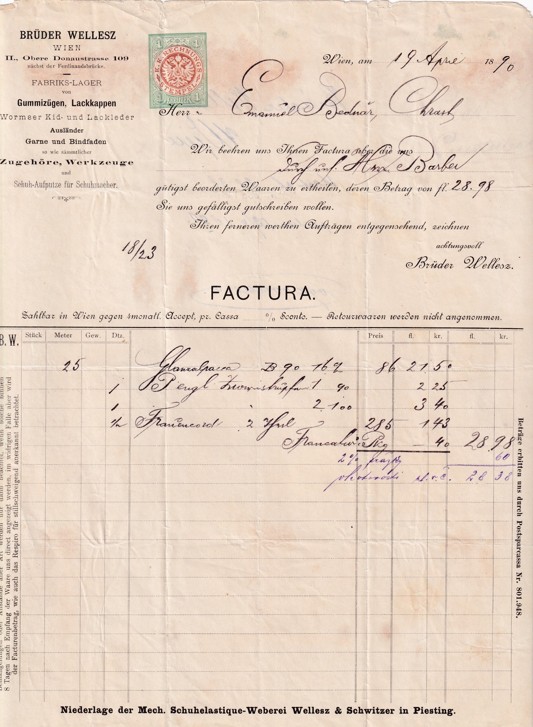 BRÜDER WELLESZ
WIEN
II., Obere Donaustrasse 109
nächst der Ferdinandsbrücke.
FABRIKS-LAGER
von
Gummizügen, Lackkappen
Wormser Kid- und Lackleder
Ausländer
Garne und Bindfaden
so wie sämmtlicher
Zugehöre, Werkzeuge
und
Schuh-Aufputze für Schuhmacher.
1 1
RECHNUNGS STEMPEL
Wien, am 19 April 1890
Herrn Emanuel Bednár, Chrast
Wir beehren uns Ihnen Factura über die uns
durch uns. Hrn Barber
gütigst beorderten Waaren zu ertheilen, deren Betrag von fl. 28.98
Sie uns gefälligst gutschreiben wollen.
Ihren ferneren werthen Aufträgen entgegensehend, zeichnen
achtungsvoll
Brüder Wellesz.
18/23
FACTURA.
Zahlbar in Wien gegen 4monatl. Accept, pr. Cassa % Sconto. — Retourwaaren werden nicht angenommen.
B. W. Stück Meter Gew. Dtz. Preis fl. kr. fl. kr.
25 B 90 167 86 21 50
1 1 90 2 25
1 2 100 3 40
1/2 2 285 1 43
— 40 28 98
2% 60
28 38
8 Tagen nach Empfang der Waare uns direct angezeigt werden, im widrigen Falle aber wird
der Facturenbetrag, wie auch das Respiro für stillschweigend anerkannt betrachtet.
Beträge erbitten uns durch Postsparcassa Nr. 801.948.
Niederlage der Mech. Schuhelastique-Weberei Wellesz & Schwitzer in Piesting.